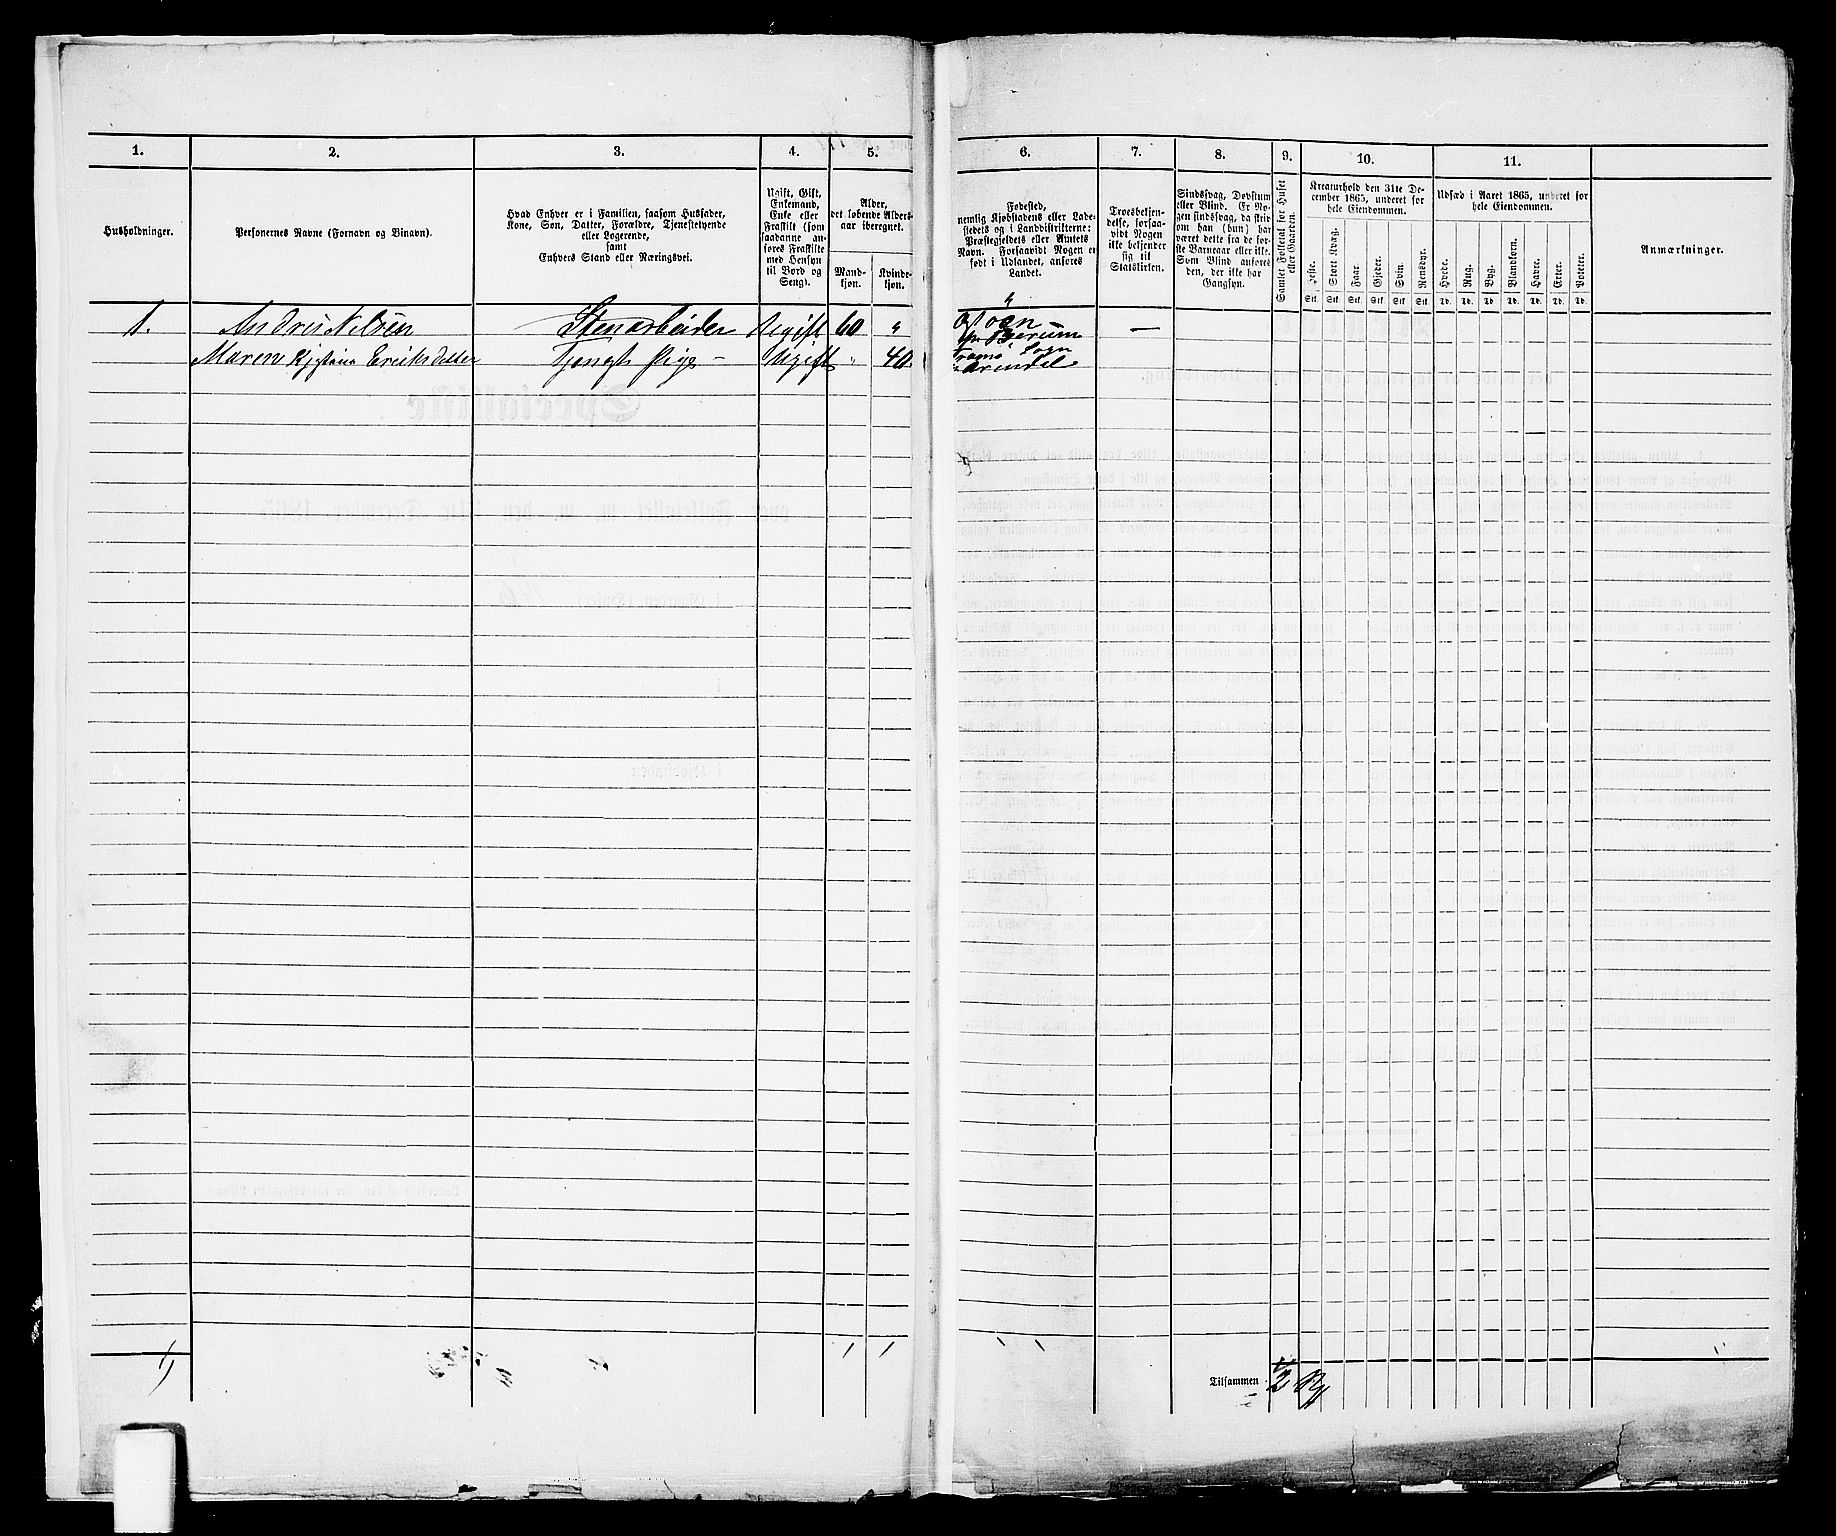 1.
2.
3.
4.
5.
6.
7.
8.
9.
10.
11.
Husholdninger.
Personernes Navne (Fornavn og Binavn).
Hvad Enhver er i Familien, saasom Husfader,
Kone, Søn, Datter, Forældre, Tjenestetyende
eller Logerende,
samt
Enhvers Stand eller Næringsvei.
Ugift, Gift,
Enkemand,
Enke eller
Fraskilt (som
saadanne an-
føres Fraskilte
med Hensyn
til Bord og
Seng).
Alder,
det løbende Alders-
aar iberegnet.
Mand-
kjøn.
Kvinde-
kjøn.
Fødested,
nemlig Kjøbstadens eller Lade-
stedets og i Landdistrikterne:
Præstegjeldets eller Amtets
Navn. Forsaavidt Nogen er
født i Udlandet, anføres
Landet.
Troesbekjen-
delse, forsaa-
vidt Nogen
ikke bekjender
sig til
Statskirken.
Sindssvag, Døvstum
eller Blind. Er No-
gen sindssvag, da skriv
om han (hun) har
været dette fra de før-
ste Barneaar eller ikke.
Som Blind anføres
den, der ikke har
Gangsyn.
Samlet Folketal for Huset
eller Gaarden.
Kreaturhold den 31te De-
cember 1865, underet for
hele Eiendommen.
Heste.
Stort Kvæg.
Faar.
Gjeder.
Svin.
Rensdyr.
Stk. Stk. Stk. Stk. Stk. Stk.
Udsæd i Aaret 1865, underet for
hele Eiendommen.
Hvede.
Rug.
Byg.
Blandkorn.
Havre.
Erter.
Poteter.
Td. Td. Td. Td. Td. Td. Td.
Anmærkninger.
1. Nilsen Stenarbeider Ugift 60 " —
Maren Eriksdatter Pige – Ugift " 40
Sogn
Arendal
Tilsammen 2